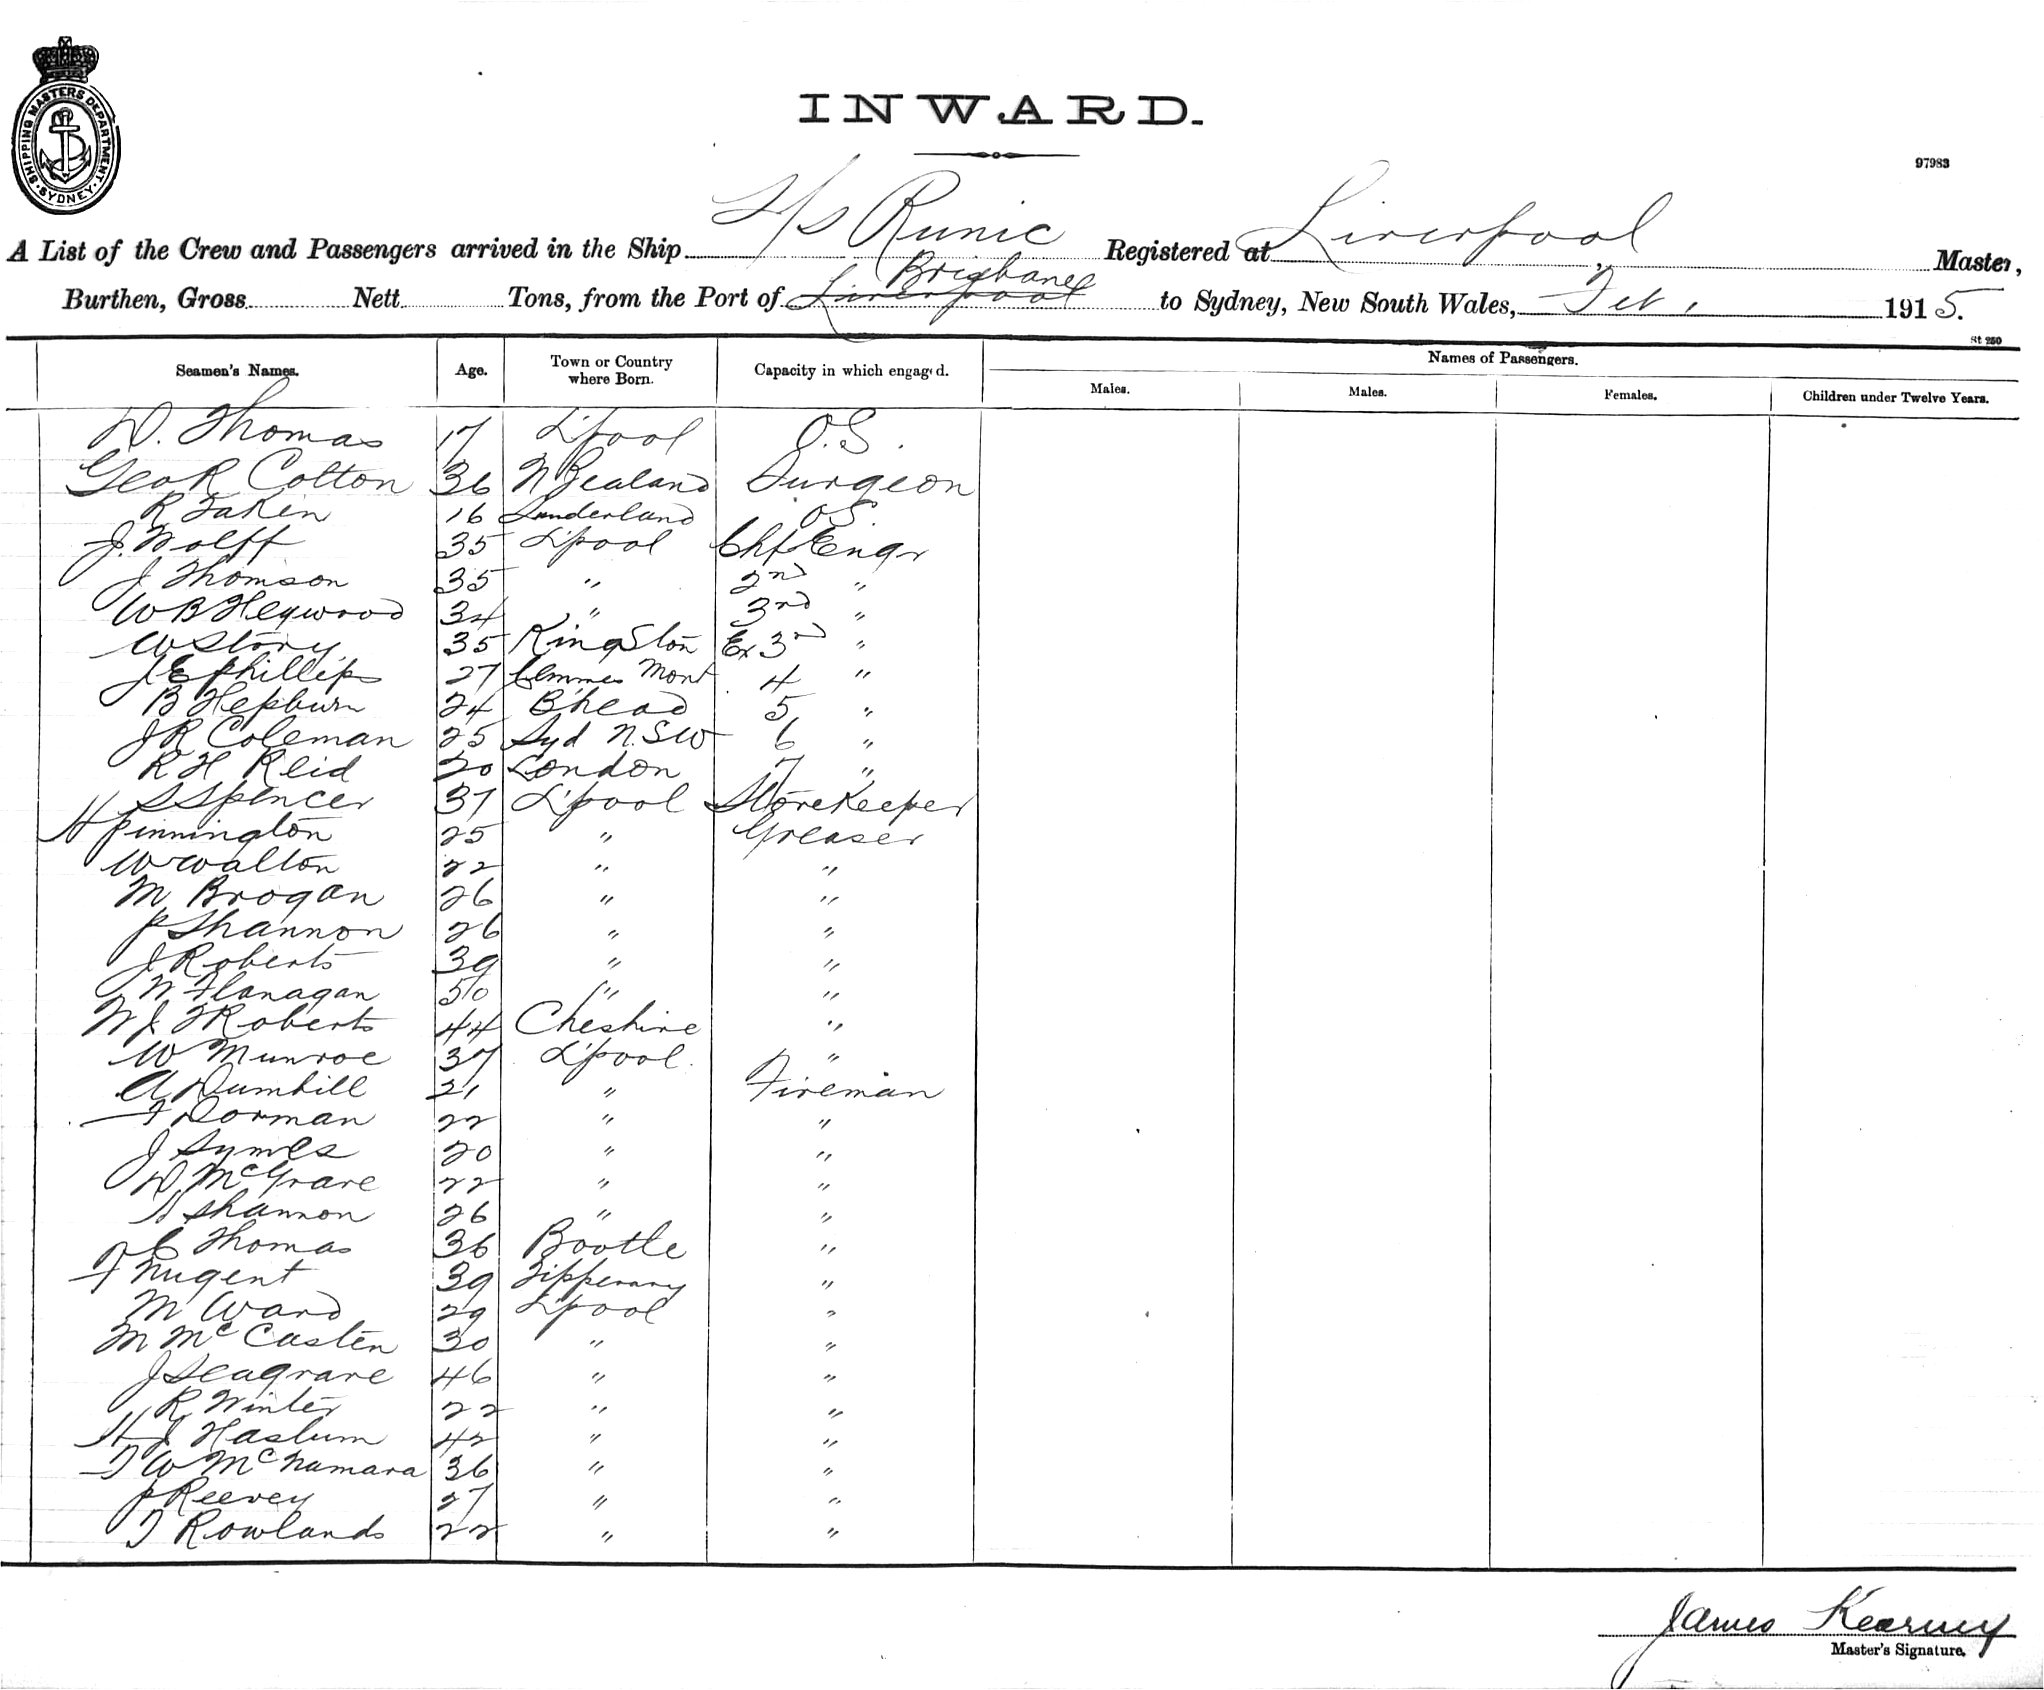 SHIPPING MASTERS DEPARTMENT. SYDNEY.
INWARD.
97983
A List of the Crew and Passengers arrived in the Ship S/S Runic Registered at Liverpool, Master,
Brisbane
Burthen, Gross Nett Tons, from the Port of Liverpool to Sydney, New South Wales, Feb, 1915.
St 250
Seamen's Names. Age. Town or Country where Born. Capacity in which engaged. Names of Passengers.
Males. Males. Females. Children under Twelve Years.
D. Thomas 17 L'pool O.S.
Geo R Colton 36 N Zealand Surgeon
R 16 Sunderland O.S.
J. Wolff 35 L'pool Chf Engr
J Thomson 35 " 2nd "
W B Heywood 34 " 3rd "
W Story 35 Kingston Ex 3rd "
J E Phillips 27 Mont 4 "
B Hepburn 24 B'head 5 "
J R Coleman 25 Syd N.S.W 6 "
R H Reid 20 London 7 "
S Spencer 37 L'pool Storekeeper
H Pinnington 25 " Greaser
W Walton 22 " "
M Brogan 26 " "
P Shannon 26 " "
J Roberts 39 " "
W Flanagan 50 " "
W J Roberts 44 Cheshire "
W Munroe 37 L'pool. "
A Dumbill 21 " Fireman
F Dorman 22 " "
J Symes 20 " "
D McGrave 22 " "
Shannon 26 " "
Thomas 36 Bootle "
F Nugent 39 Tipperary "
M Ward 29 L'pool "
M McCasten 30 " "
J Seagrave 46 " "
R Winter 22 " "
H J Haslum 42 " "
T W McNamara 36 " "
P Reevey 27 " "
T Rowlands 22 " "
James Kearney
Master's Signature.